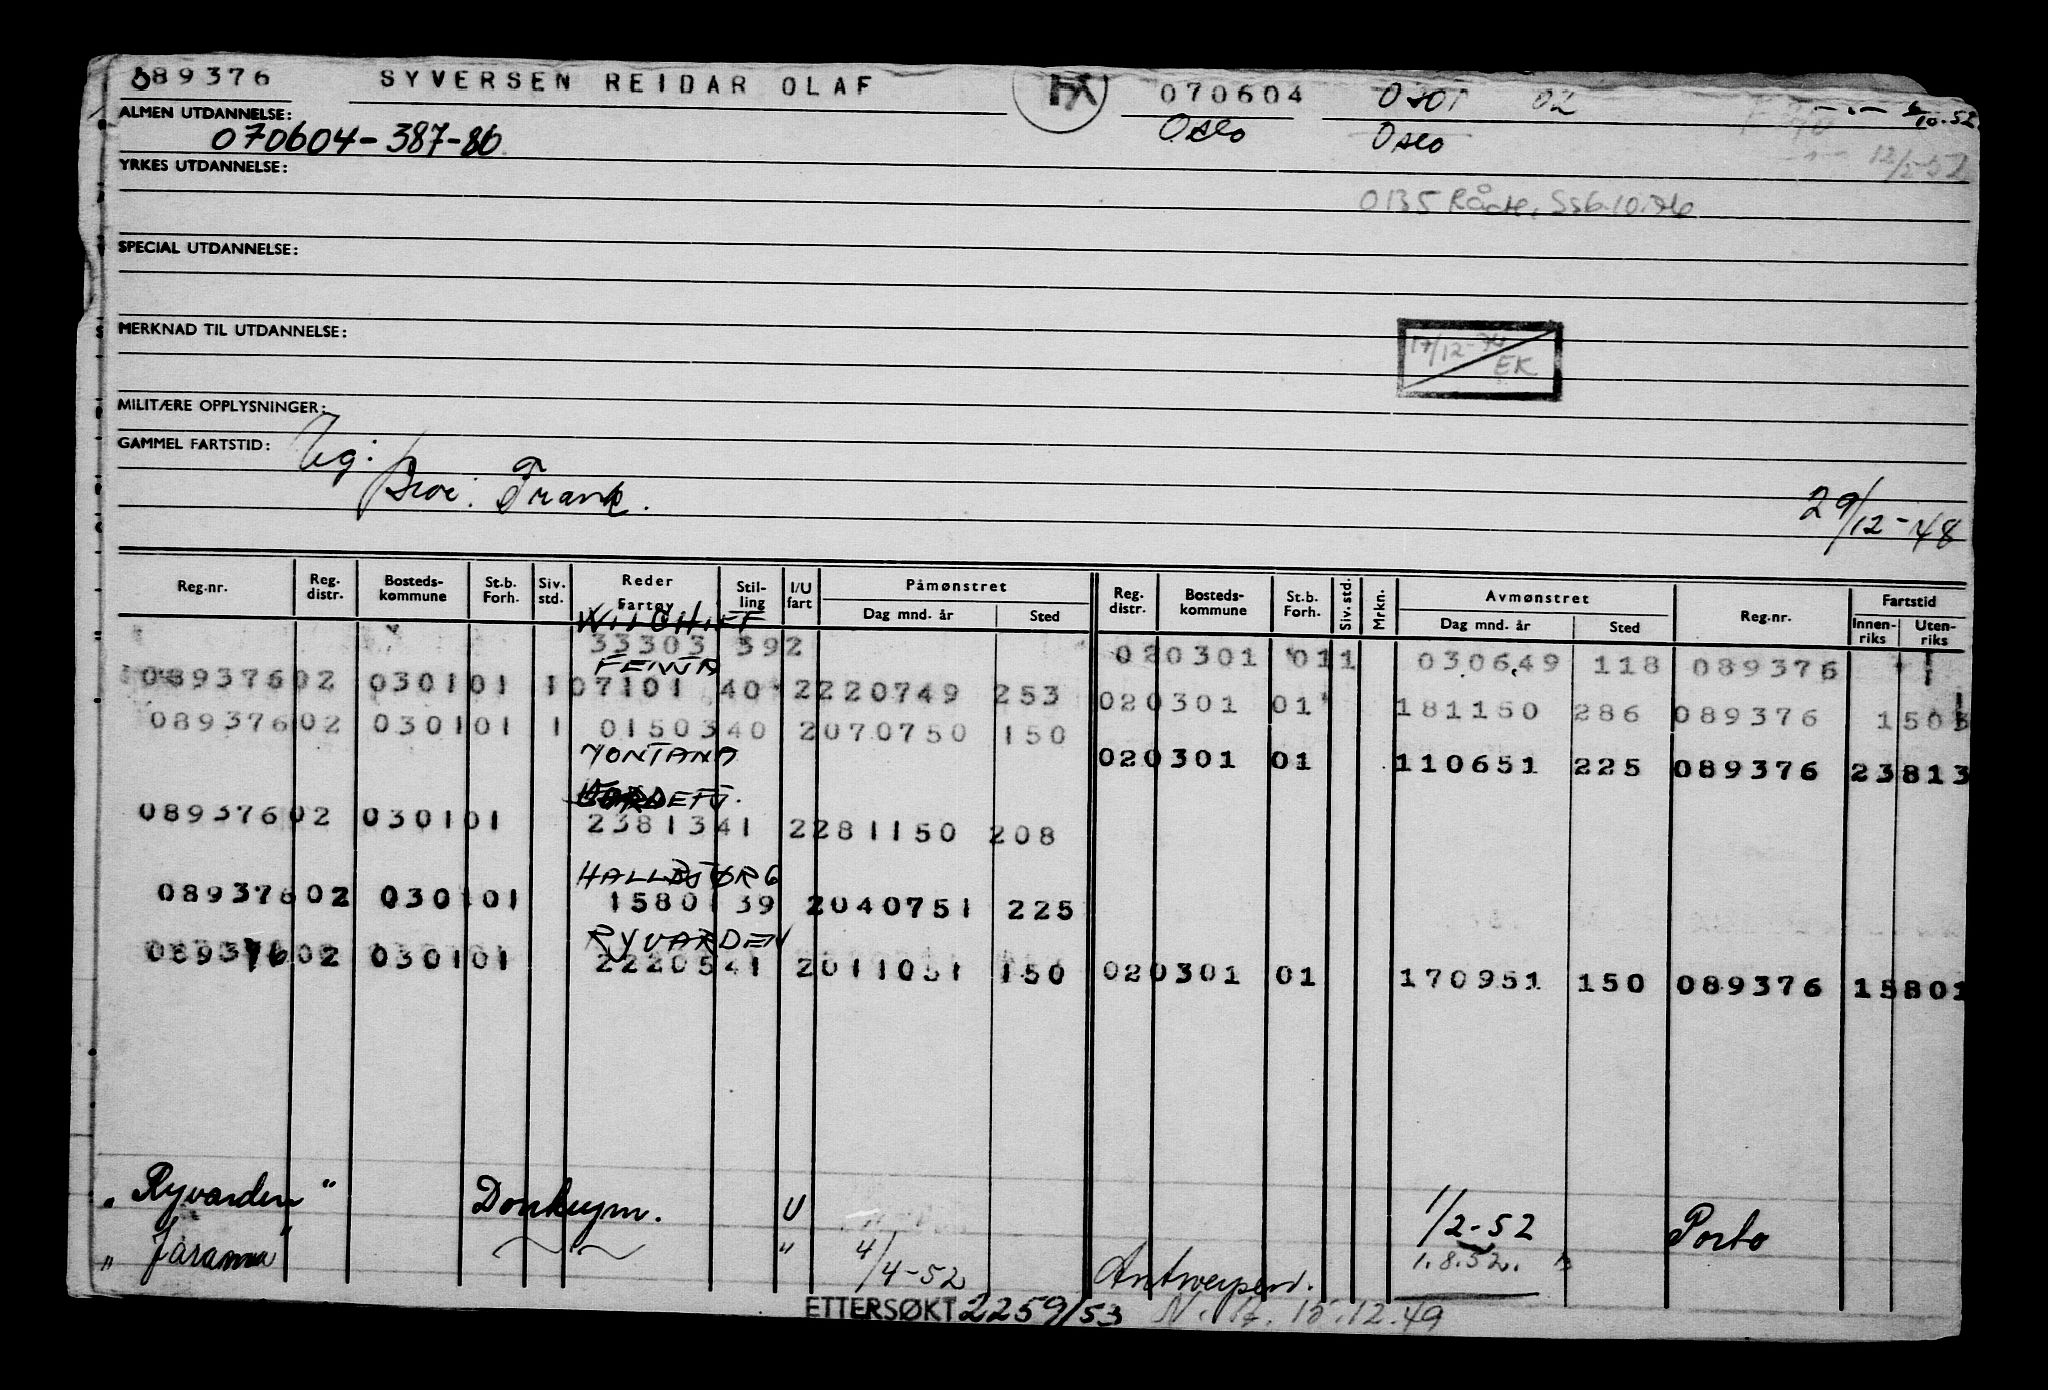 089376 SYVERSEN REIDAR OLAF FX 070604 0301 02 -.- 8/10.52
ALMEN UTDANNELSE: Oslo Oslo
070604-387-86
-.- 12/5-52
YRKES UTDANNELSE:
0135 Råde, Ssb.10.76
SPECIAL UTDANNELSE:
MERKNAD TIL UTDANNELSE:
17/12-74 EK
MILITÆRE OPPLYSNINGER:
GAMMEL FARTSTID:
Frank.
29/12-48
Reg.nr. Reg. distr. Bosteds-kommune St.b. Forh. Siv. std. Reder Fartøy Stil-ling I/U fart Påmønstret Dag mnd. år Sted Reg. distr. Bosteds-kommune St.b. Forh. Siv. std. Mrkn. Avmønstret Dag mnd. år Sted Reg.nr. Fartstid Innen-riks Uten-riks
33303 392 020301 011 030649 118 089376
FENJA
089376 02 0301 01 1 07101 40 2 220749 253 020301 01 181150 286 089376 1503
089376 02 0301 01 1 01503 40 2 070750 150
MONTANA 020301 01 110651 225 089376 23813
089376 02 0301 01 23813 41 2 281150 208
HALLBJØRG
089376 02 0301 01 15801 39 2 040751 225
RYVARDEN
089376 02 0301 01 22205 41 2 011051 150 020301 01 170951 150 089376 15801
„Ryvarden" Donkeym. U 1/2-52 Porto
„Jaramma" " 4/4-52 Antwerpen. 1.8.52.
ETTERSØKT 2259/53 15.12.49